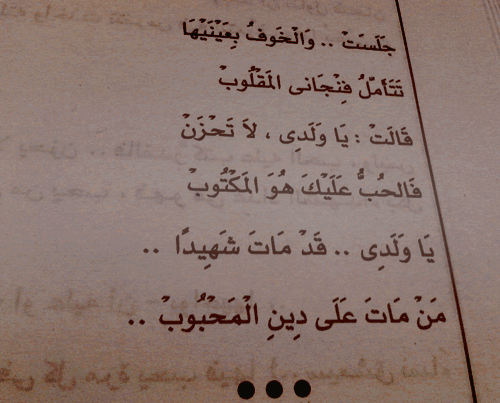 جَلَسَتْ .. وَالْخَوفُ بِعَيْنَيْهَا
تَتَأَمَّلُ فِنْجَانى المَقْلُوبْ
قَالَتْ : يَا وَلَدِى ، لاَ تَحْزَنْ
فَالحُبُّ عَلَيْكَ هُوَ المَكْتُوبْ
يَا وَلَدِى .. قَدْ مَاتَ شَهِيدًا ..
مَنْ مَاتَ عَلَى دِينِ الْمَحْبُوبْ ..